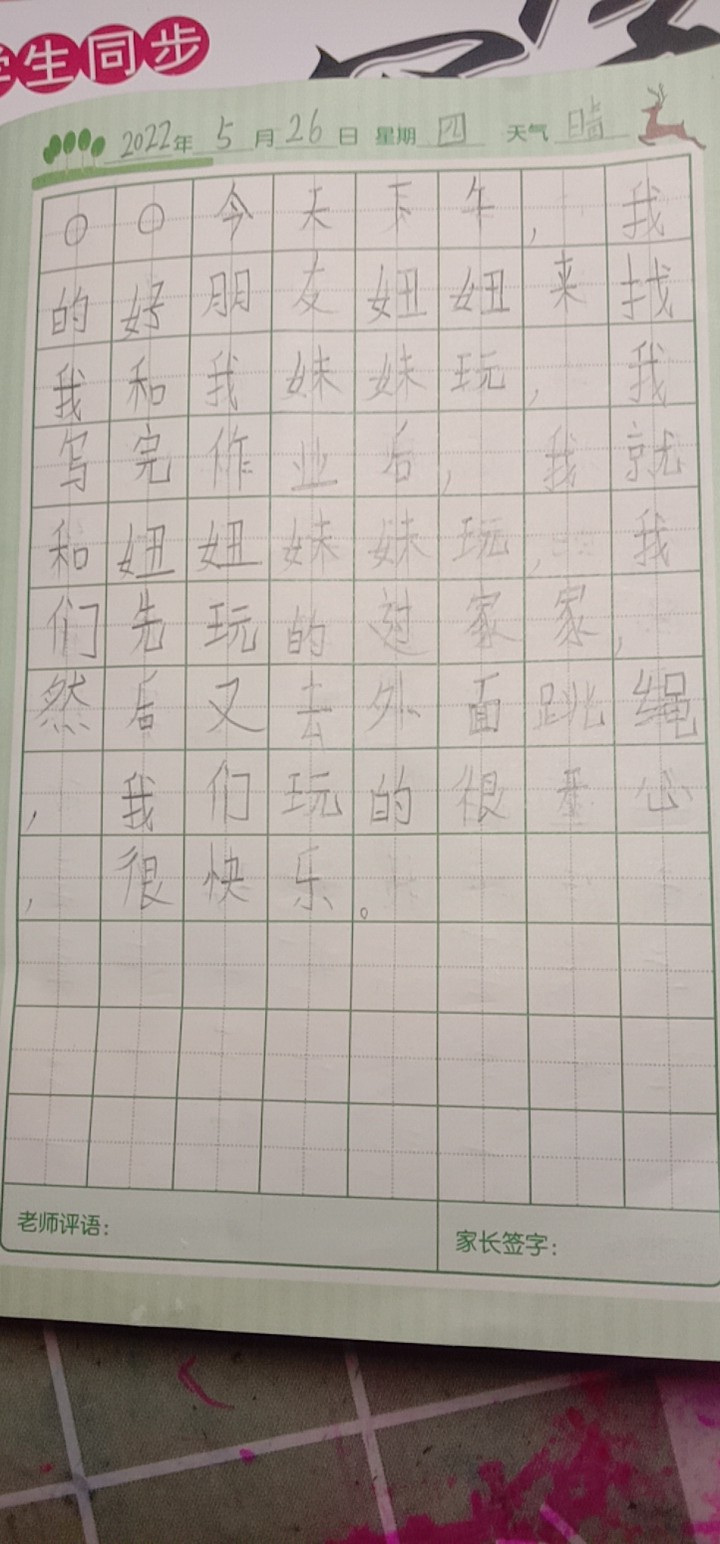 学生同步
2022年 5月26日 星期四 天气 晴
〇〇今天下午，我
的好朋友妞妞来找
我和我妹妹玩，我
写完作业后，我就
和妞妞妹妹玩，我
们先玩的过家家，
然后又去外面跳绳
，我们玩的很开心
，很快乐。
老师评语：
家长签字：